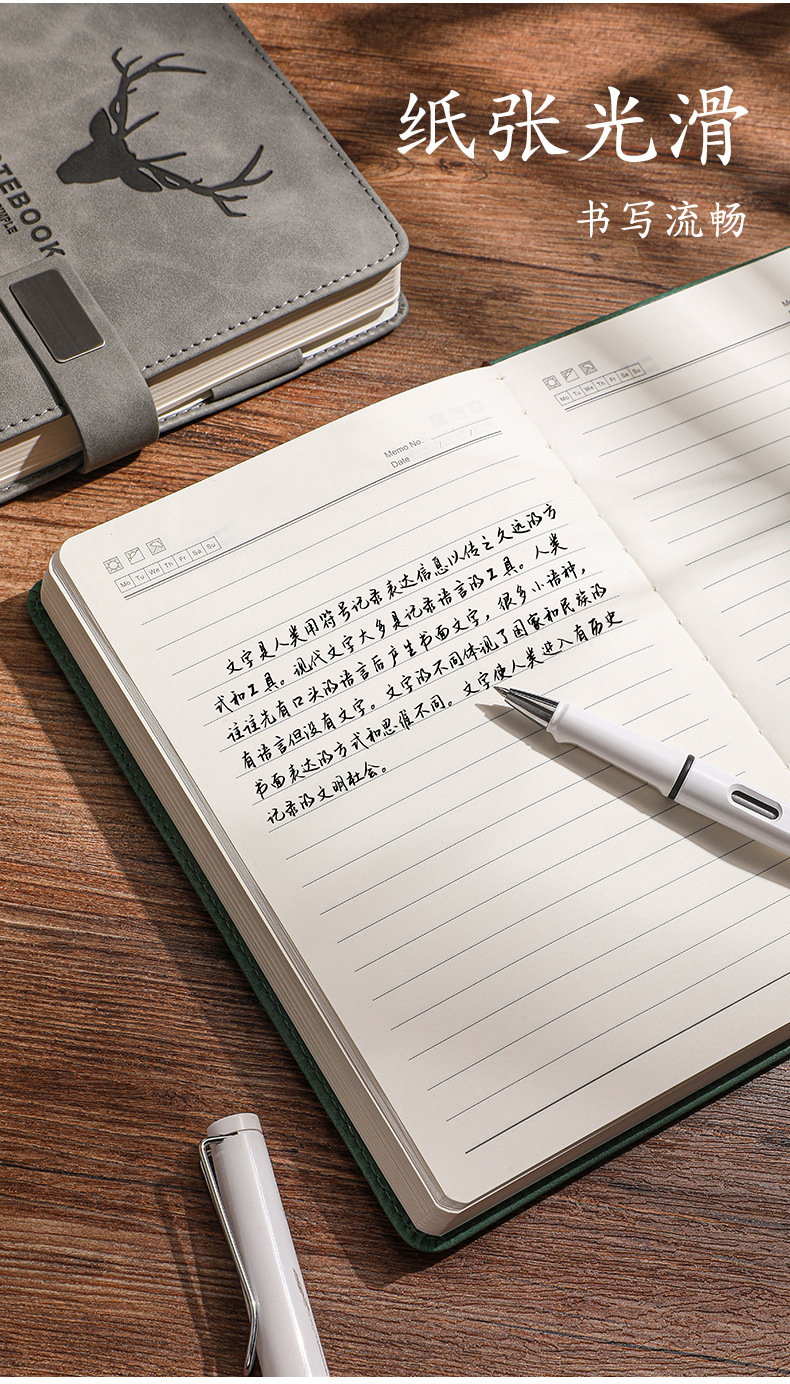 纸张光滑
书写流畅
OTEBOOK
Memo No.
Date
Mo Tu We Th Fr Sa Su
文字是人类用符号记录表达信息以传之久远的方
式和工具。现代文字大多是记录语言的工具。人类
往往先有口头的语言后产生书面文字，很多小语种，
有语言但没有文字。文字的不同体现了国家和民族的
书面表达的方式和思维不同。文字使人类进入有历史
记录的文明社会。
Mo Tu We Th Fr Sa Su